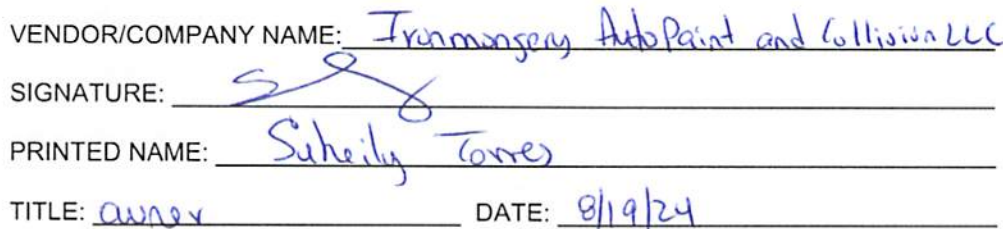 VENDOR/COMPANY NAME: Ironmongery AutoPaint and Collision LLC
SIGNATURE:
PRINTED NAME: Suheily Torres
TITLE: owner DATE: 8/19/24